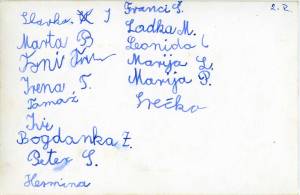 Slavka J
Marta B
Toni
Irena, T.
Tomaž
Ivi
Bogdanka Ž.
Peter S.
Hermina
Franci S.
Ladka M.
Leonida
Marija L.
Marija P.
Srečko
2. R